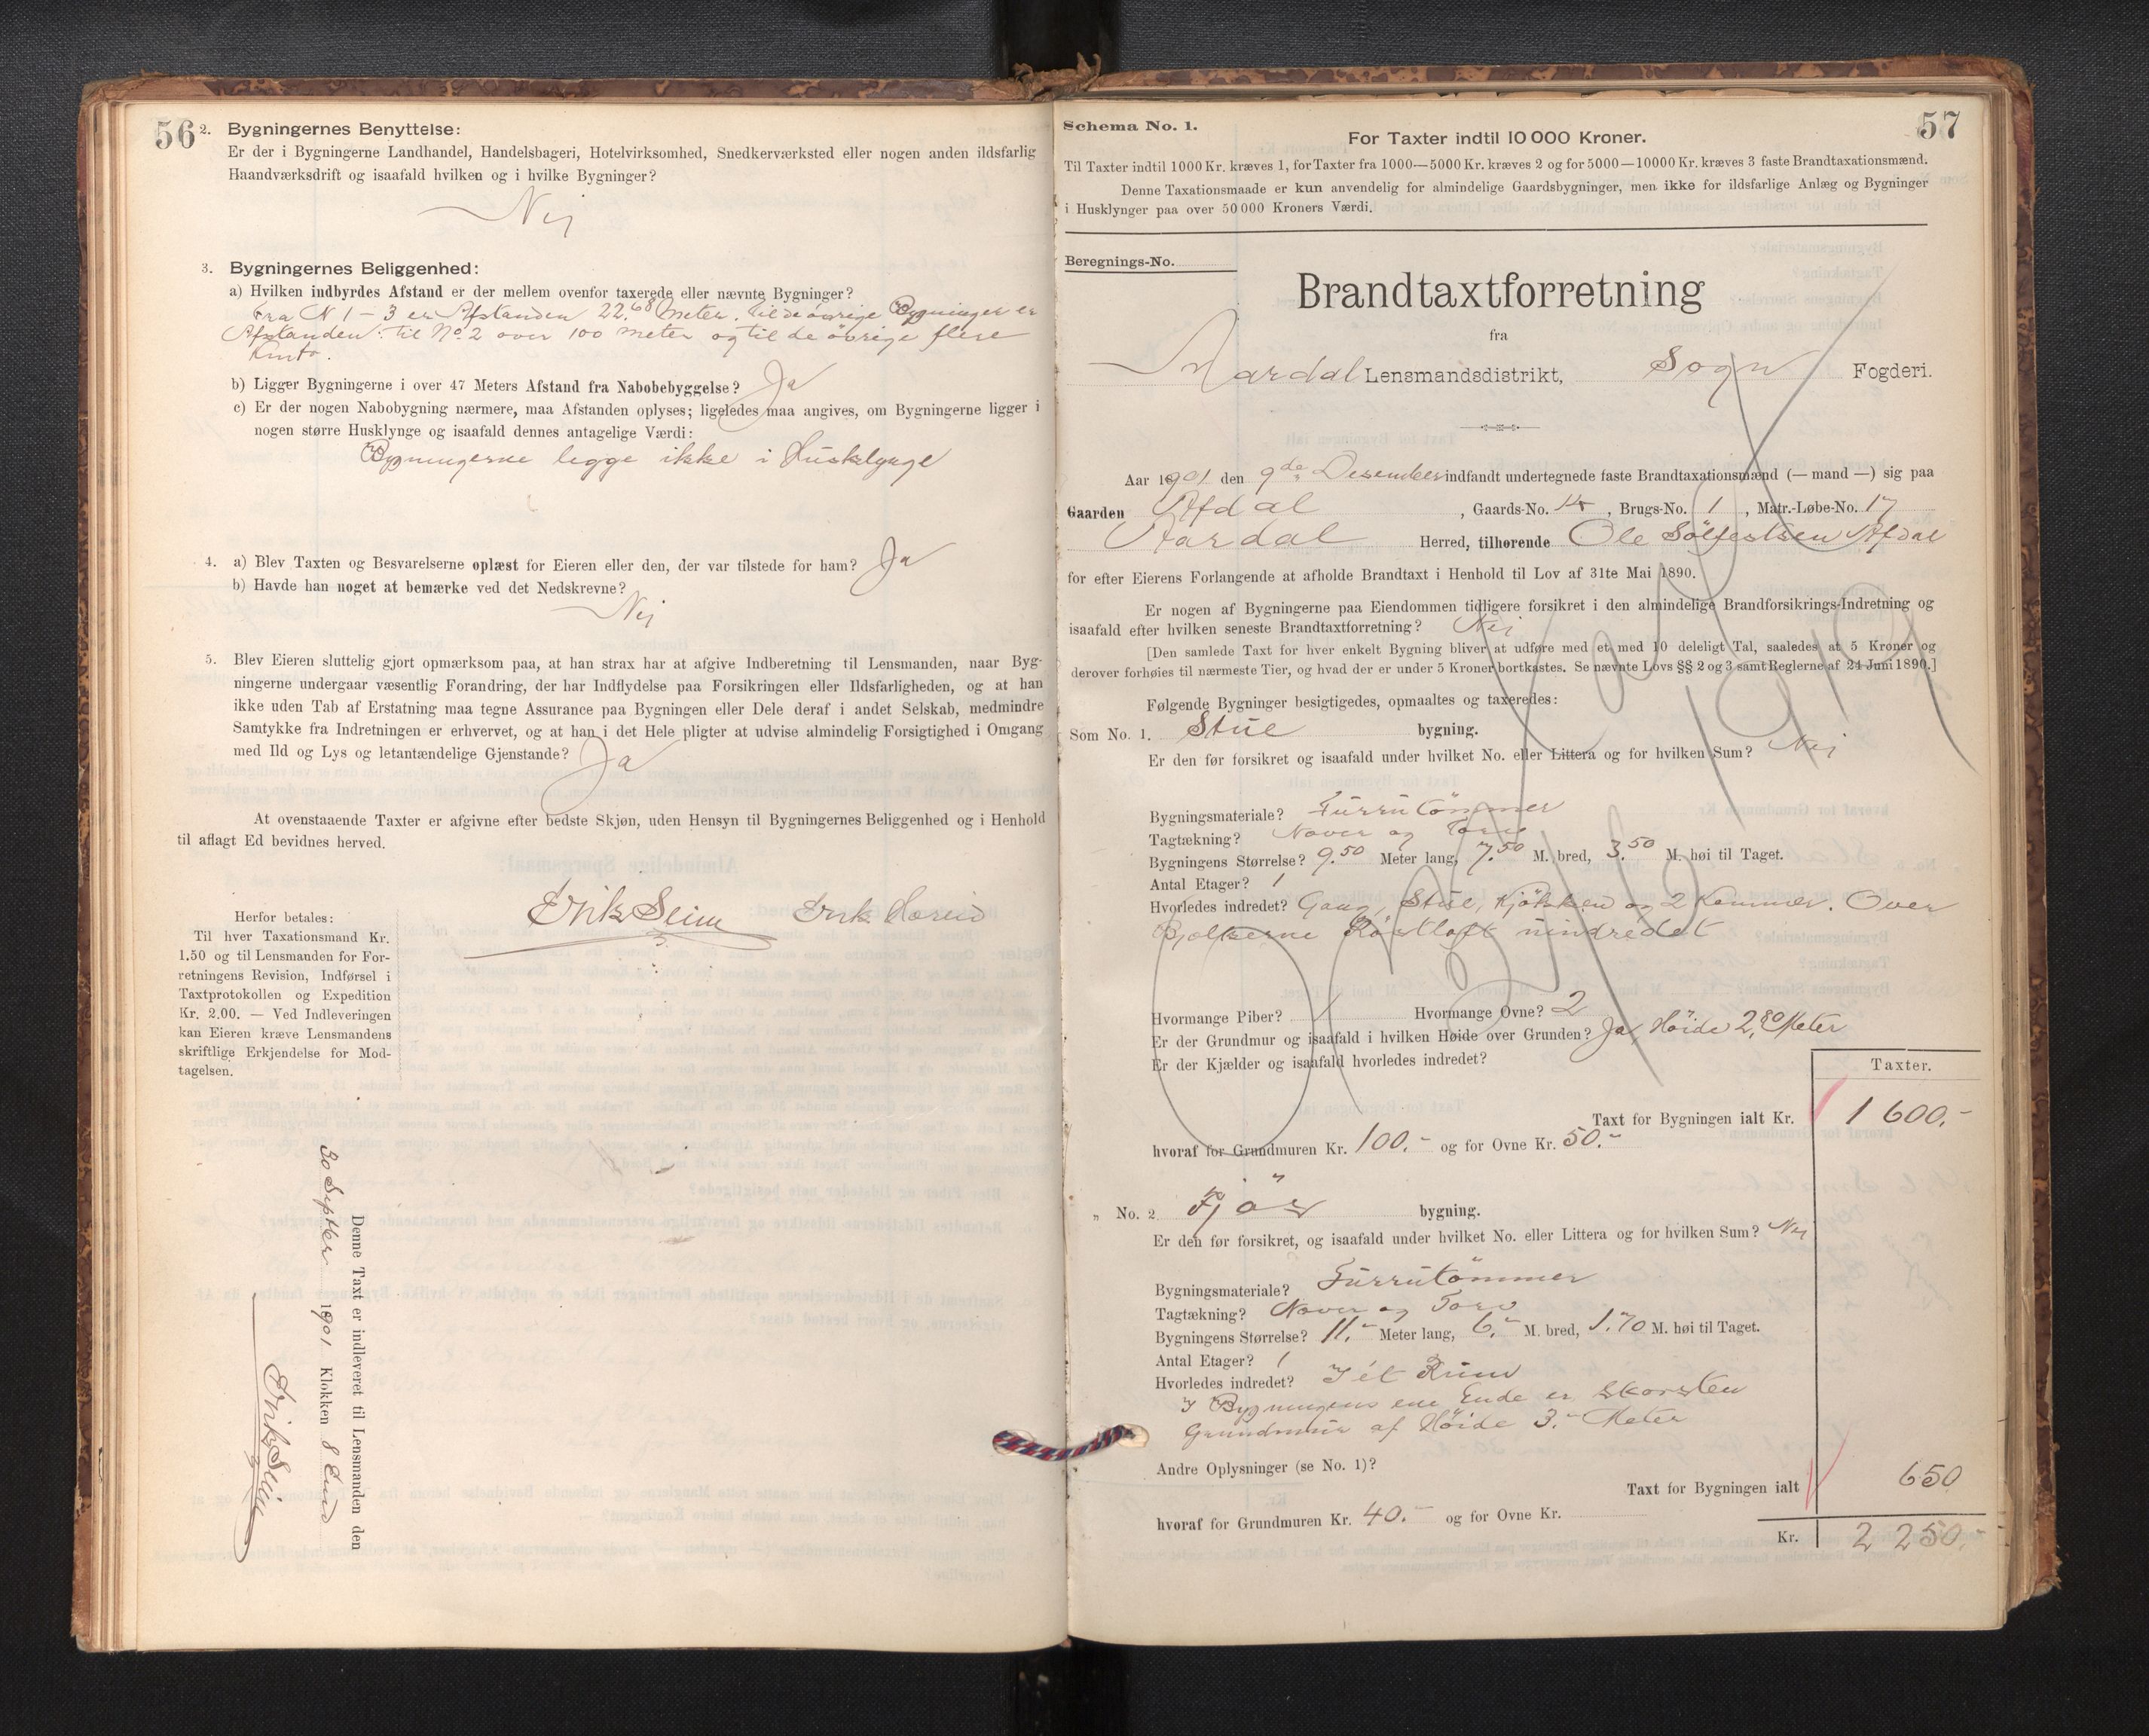 56
2. Bygningernes Benyttelse:
Er der i Bygningerne Landhandel, Handelsbageri, Hotelvirksomhed, Snedkerværksted eller nogen anden ildsfarlig
Haandværksdrift og isaafald hvilken og i hvilke Bygninger?
Nei
3. Bygningernes Beliggenhed:
a) Hvilken indbyrdes Afstand er der mellem ovenfor taxerede eller nævnte Bygninger?
Fra N 1 – 3 er Afstanden 22,68 Meter. Til de øvrige Bygninger er
Afstanden: til No. 2 over 100 meter og til de övrige flere
b) Ligger Bygningerne i over 47 Meters Afstand fra Nabobebyggelse? Ja
c) Er der nogen Nabobygning nærmere, maa Afstanden oplyses; ligeledes maa angives, om Bygningerne ligger i
nogen større Husklynge og isaafald dennes antagelige Værdi:
Bygningerne legge ikke i Husklynge
4. a) Blev Taxten og Besvarelserne oplæst for Eieren eller den, der var tilstede for ham? Ja
b) Havde han noget at bemærke ved det Nedskrevne?
Nei
5. Blev Eieren sluttelig gjort opmærksom paa, at han strax har at afgive Indberetning til Lensmanden, naar Byg-
ningerne undergaar væsentlig Forandring, der har Indflydelse paa Forsikringen eller Ildsfarligheden, og at han
ikke uden Tab af Erstatning maa tegne Assurance paa Bygningen eller Dele deraf i andet Selskab, medmindre
Samtykke fra Indretningen er erhvervet, og at han i det Hele pligter at udvise almindelig Forsigtighed i Omgang
med Ild og Lys og letantændelige Gjenstande? Ja
At ovenstaaende Taxter er afgivne efter bedste Skjøn, uden Hensyn til Bygningernes Beliggenhed og i Henhold
til aflagt Ed bevidnes herved.
Erik Seim Erik Hareid
Herfor betales:
Til hver Taxationsmand Kr.
1.50 og til Lensmanden for For-
retningens Revision, Indførsel i
Taxtprotokollen og Expedition
Kr. 2.00. — Ved Indleveringen
kan Eieren kræve Lensmandens
skriftlige Erkjendelse for Mod-
tagelsen.
Denne Taxt er indleveret til Lensmanden den
30 Septbr 1901 Klokken 8 Emd
Erik Seim
57
Schema No. 1.
For Taxter indtil 10 000 Kroner.
Til Taxter indtil 1000 Kr. kræves 1, for Taxter fra 1000—5000 Kr. kræves 2 og for 5000—10000 Kr. kræves 3 faste Brandtaxationsmænd.
Denne Taxationsmaade er kun anvendelig for almindelige Gaardsbygninger, men ikke for ildsfarlige Anlæg og Bygninger
i Husklynger paa over 50 000 Kroners Værdi.
Beregnings-No.
Brandtaxtforretning
fra
Aardal Lensmandsdistrikt, Sogn Fogderi.
Aar 1901 den 9de Desember indfandt undertegnede faste Brandtaxationsmænd (— mand —) sig paa
Gaarden Afdal, Gaards-No. 14, Brugs-No. 1, Matr.-Løbe-No. 17
Aardal Herred, tilhørende Ole Sölfestsen Afdal
for efter Eierens Forlangende at afholde Brandtaxt i Henhold til Lov af 31te Mai 1890.
Er nogen af Bygningerne paa Eiendommen tidligere forsikret i den almindelige Brandforsikrings-Indretning og
isaafald efter hvilken seneste Brandtaxtforretning? Nei
[Den samlede Taxt for hver enkelt Bygning bliver at udføre med et med 10 deleligt Tal, saaledes at 5 Kroner og
derover forhøies til nærmeste Tier, og hvad der er under 5 Kroner bortkastes. Se nævnte Lovs §§ 2 og 3 samt Reglerne af 24 Juni 1890.]
Følgende Bygninger besigtigedes, opmaaltes og taxeredes:
Som No. 1. Stue bygning.
Er den før forsikret og isaafald under hvilket No. eller Littera og for hvilken Sum? Nei
Bygningsmateriale? Furrutömmer
Tagtækning? Næver og Torv
Bygningens Størrelse? 9.50 Meter lang, 7.50 M. bred, 3.50 M. høi til Taget.
Antal Etager? 1
Hvorledes indredet? Gang, Stue, Kjökken og 2 Kammer. Over
Bjelkerne Röstloft uindredet
Hvormange Piber? 1 Hvormange Ovne? 2
Er der Grundmur og isaafald i hvilken Høide over Grunden? Ja, Höide 2,80 Meter
Er der Kjælder og isaafald hvorledes indredet?
Taxter.
Taxt for Bygningen ialt Kr. 1 600.-
hvoraf for Grundmuren Kr. 100.- og for Ovne Kr. 50.-
„ No. 2 Fjös bygning.
Er den før forsikret, og isaafald under hvilket No. eller Littera og for hvilken Sum? Nei
Bygningsmateriale? Furrutömmer
Tagtækning? Næver og Torv
Bygningens Størrelse? 11.- Meter lang, 6.- M. bred, 1.70 M. høi til Taget.
Antal Etager? 1
Hvorledes indredet? I ét Rum
I Bygningens ene Ende er Skorsten
Grundmur af Höide 3.- Meter
Andre Oplysninger (se No. 1)?
Taxt for Bygningen ialt 650
hvoraf for Grundmuren Kr. 40.- og for Ovne Kr.
Kr. 2 250.-